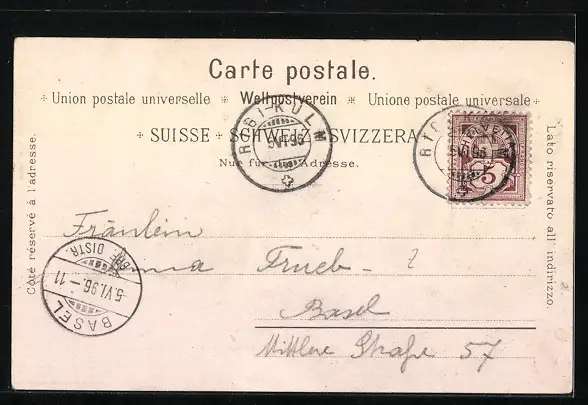 Carte postale.
Union postale universelle Weltpostverein Unione postale universale
SUISSE SCHWEIZ SVIZZERA
Nur für die Adresse.
Côté réservé à l'adresse.
Lato riservato all' indirizzo.
RIGI-KULM
5.VI.96
5
Fräulein
Emma Frueh
Basel
Mittlere Straße 57
BASEL
5.VI.96.-11
BRF. DISTR.